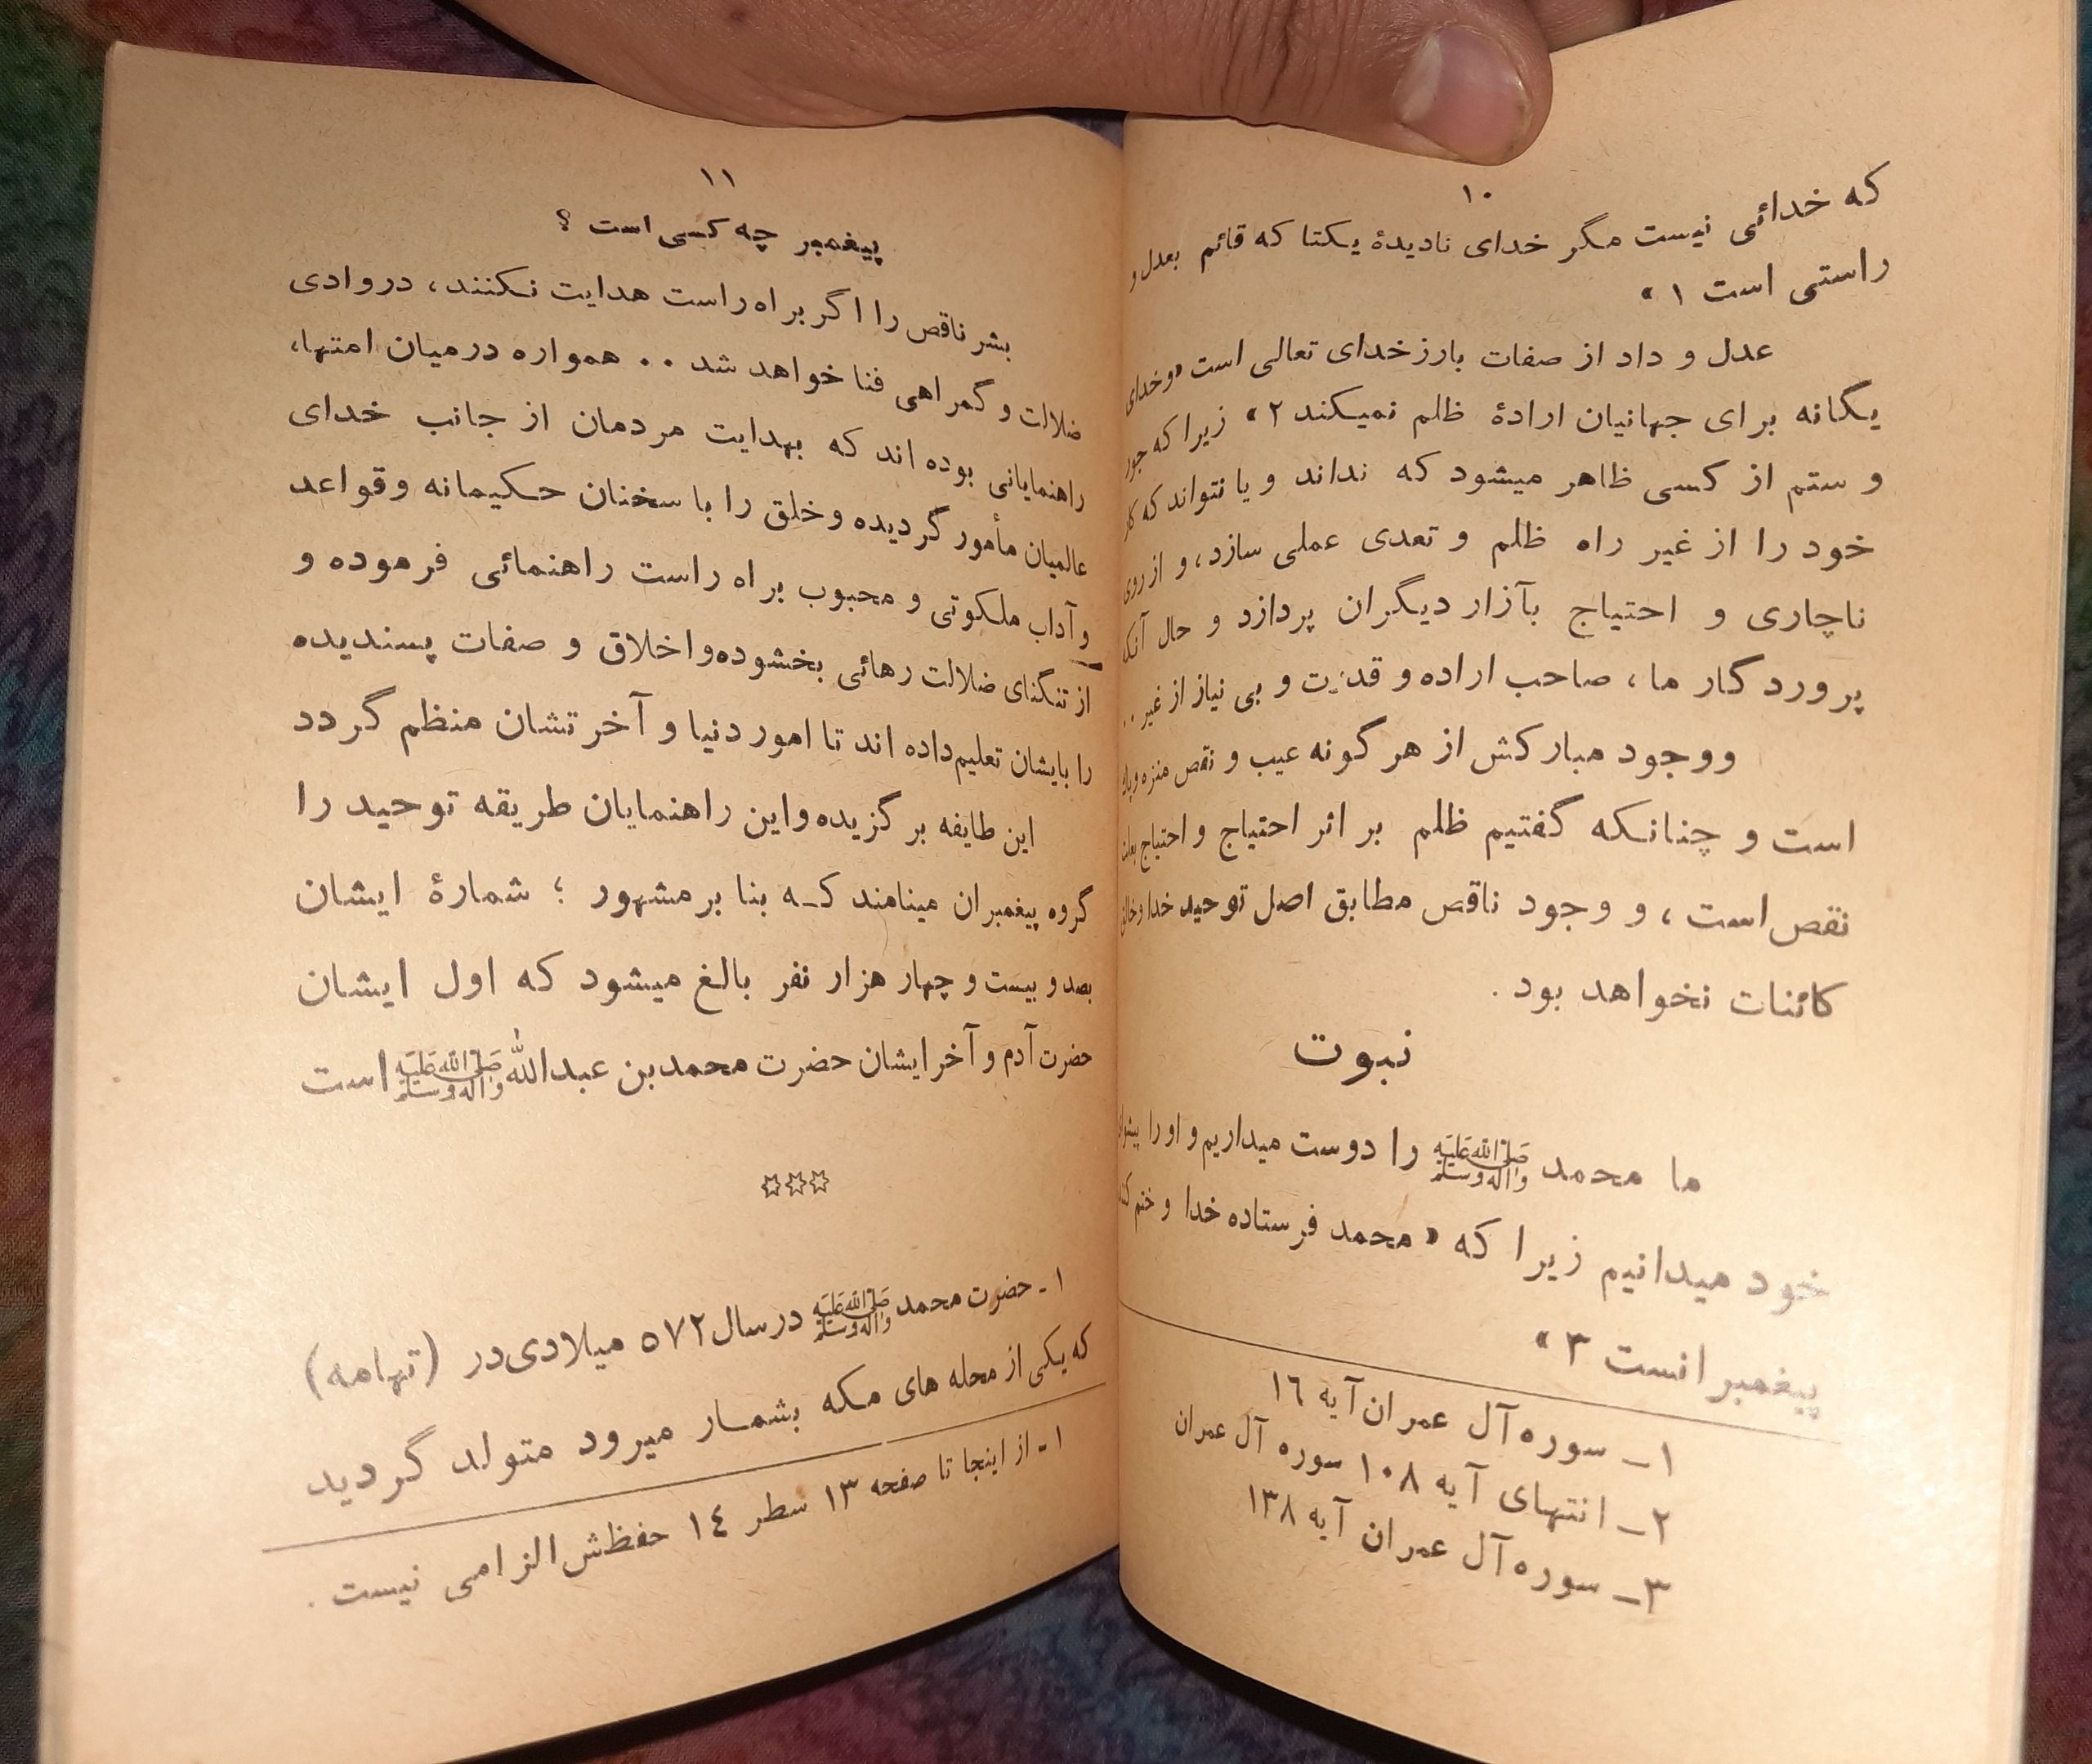 ۱۰
که خدائی نیست مگر خدای نادیدهٔ یکتا که قائم بعدل و
راستی است ۱ »
عدل و داد از صفات بارز خدای تعالی است «وخدای
یگانه برای جهانیان ارادهٔ ظلم نمیکند ۲ » زیرا که جور
و ستم از کسی ظاهر میشود که نداند و یا نتواند که کار
خود را از غیر راه ظلم و تعدی عملی سازد، و از روی
ناچاری و احتیاج بآزار دیگران پردازد و حال آنکه
پروردگار ما، صاحب اراده و قدرت و بی نیاز از غیر..
ووجود مبارکش از هر گونه عیب و نقص منزه و
است و چنانکه گفتیم ظلم بر اثر احتیاج و احتیاج
نقص است، و وجود ناقص مطابق اصل توحید خدا و
کائنات نخواهد بود.
نبوت
ما محمد ﷺ را دوست میداریم و او را
خود میدانیم زیرا که « محمد فرستاده خدا و ختم
پیغمبرانست ۳ »
۱ــ سوره آل عمران آیه ۱٦
۲ــ انتهای آیه ۱۰۸ سوره آل عمران
۳ــ سوره آل عمران آیه ۱۳۸
۱۱
پیغمبر چه کسی است ؟
بشر ناقص را اگر براه راست هدایت نکنند، دروادی
ضلالت و گمراهی فنا خواهد شد .. همواره درمیان امتها،
راهنمایانی بوده اند که بهدایت مردمان از جانب خدای
عالمیان مأمور گردیده وخلق را با سخنان حکیمانه وقواعد
وآداب ملکوتی و محبوب براه راست راهنمائی فرموده و
از تنگنای ضلالت رهائی بخشوده‌واخلاق و صفات پسندیده
را بایشان تعلیم‌داده اند تا امور دنیا و آخرتشان منظم گردد
این طایفه برگزیده‌واین راهنمایان طریقه توحید را
گروه پیغمبران مینامند کـه بنا برمشهور ؛ شمارهٔ ایشان
بصد و بیست و چهار هزار نفر بالغ میشود که اول ایشان
حضرت آدم و آخر ایشان حضرت محمدبن عبدالله ﷺ است
✡✡✡
۱ـ حضرت محمد ﷺ درسال ۵۷۲ میلادی‌در (تهامه)
که یکی از محله های مکه بشمـار میرود متولد گردید
۱ـ از اینجا تا صفحه ۱۳ سطر ۱٤ حفظش الزامی نیست.